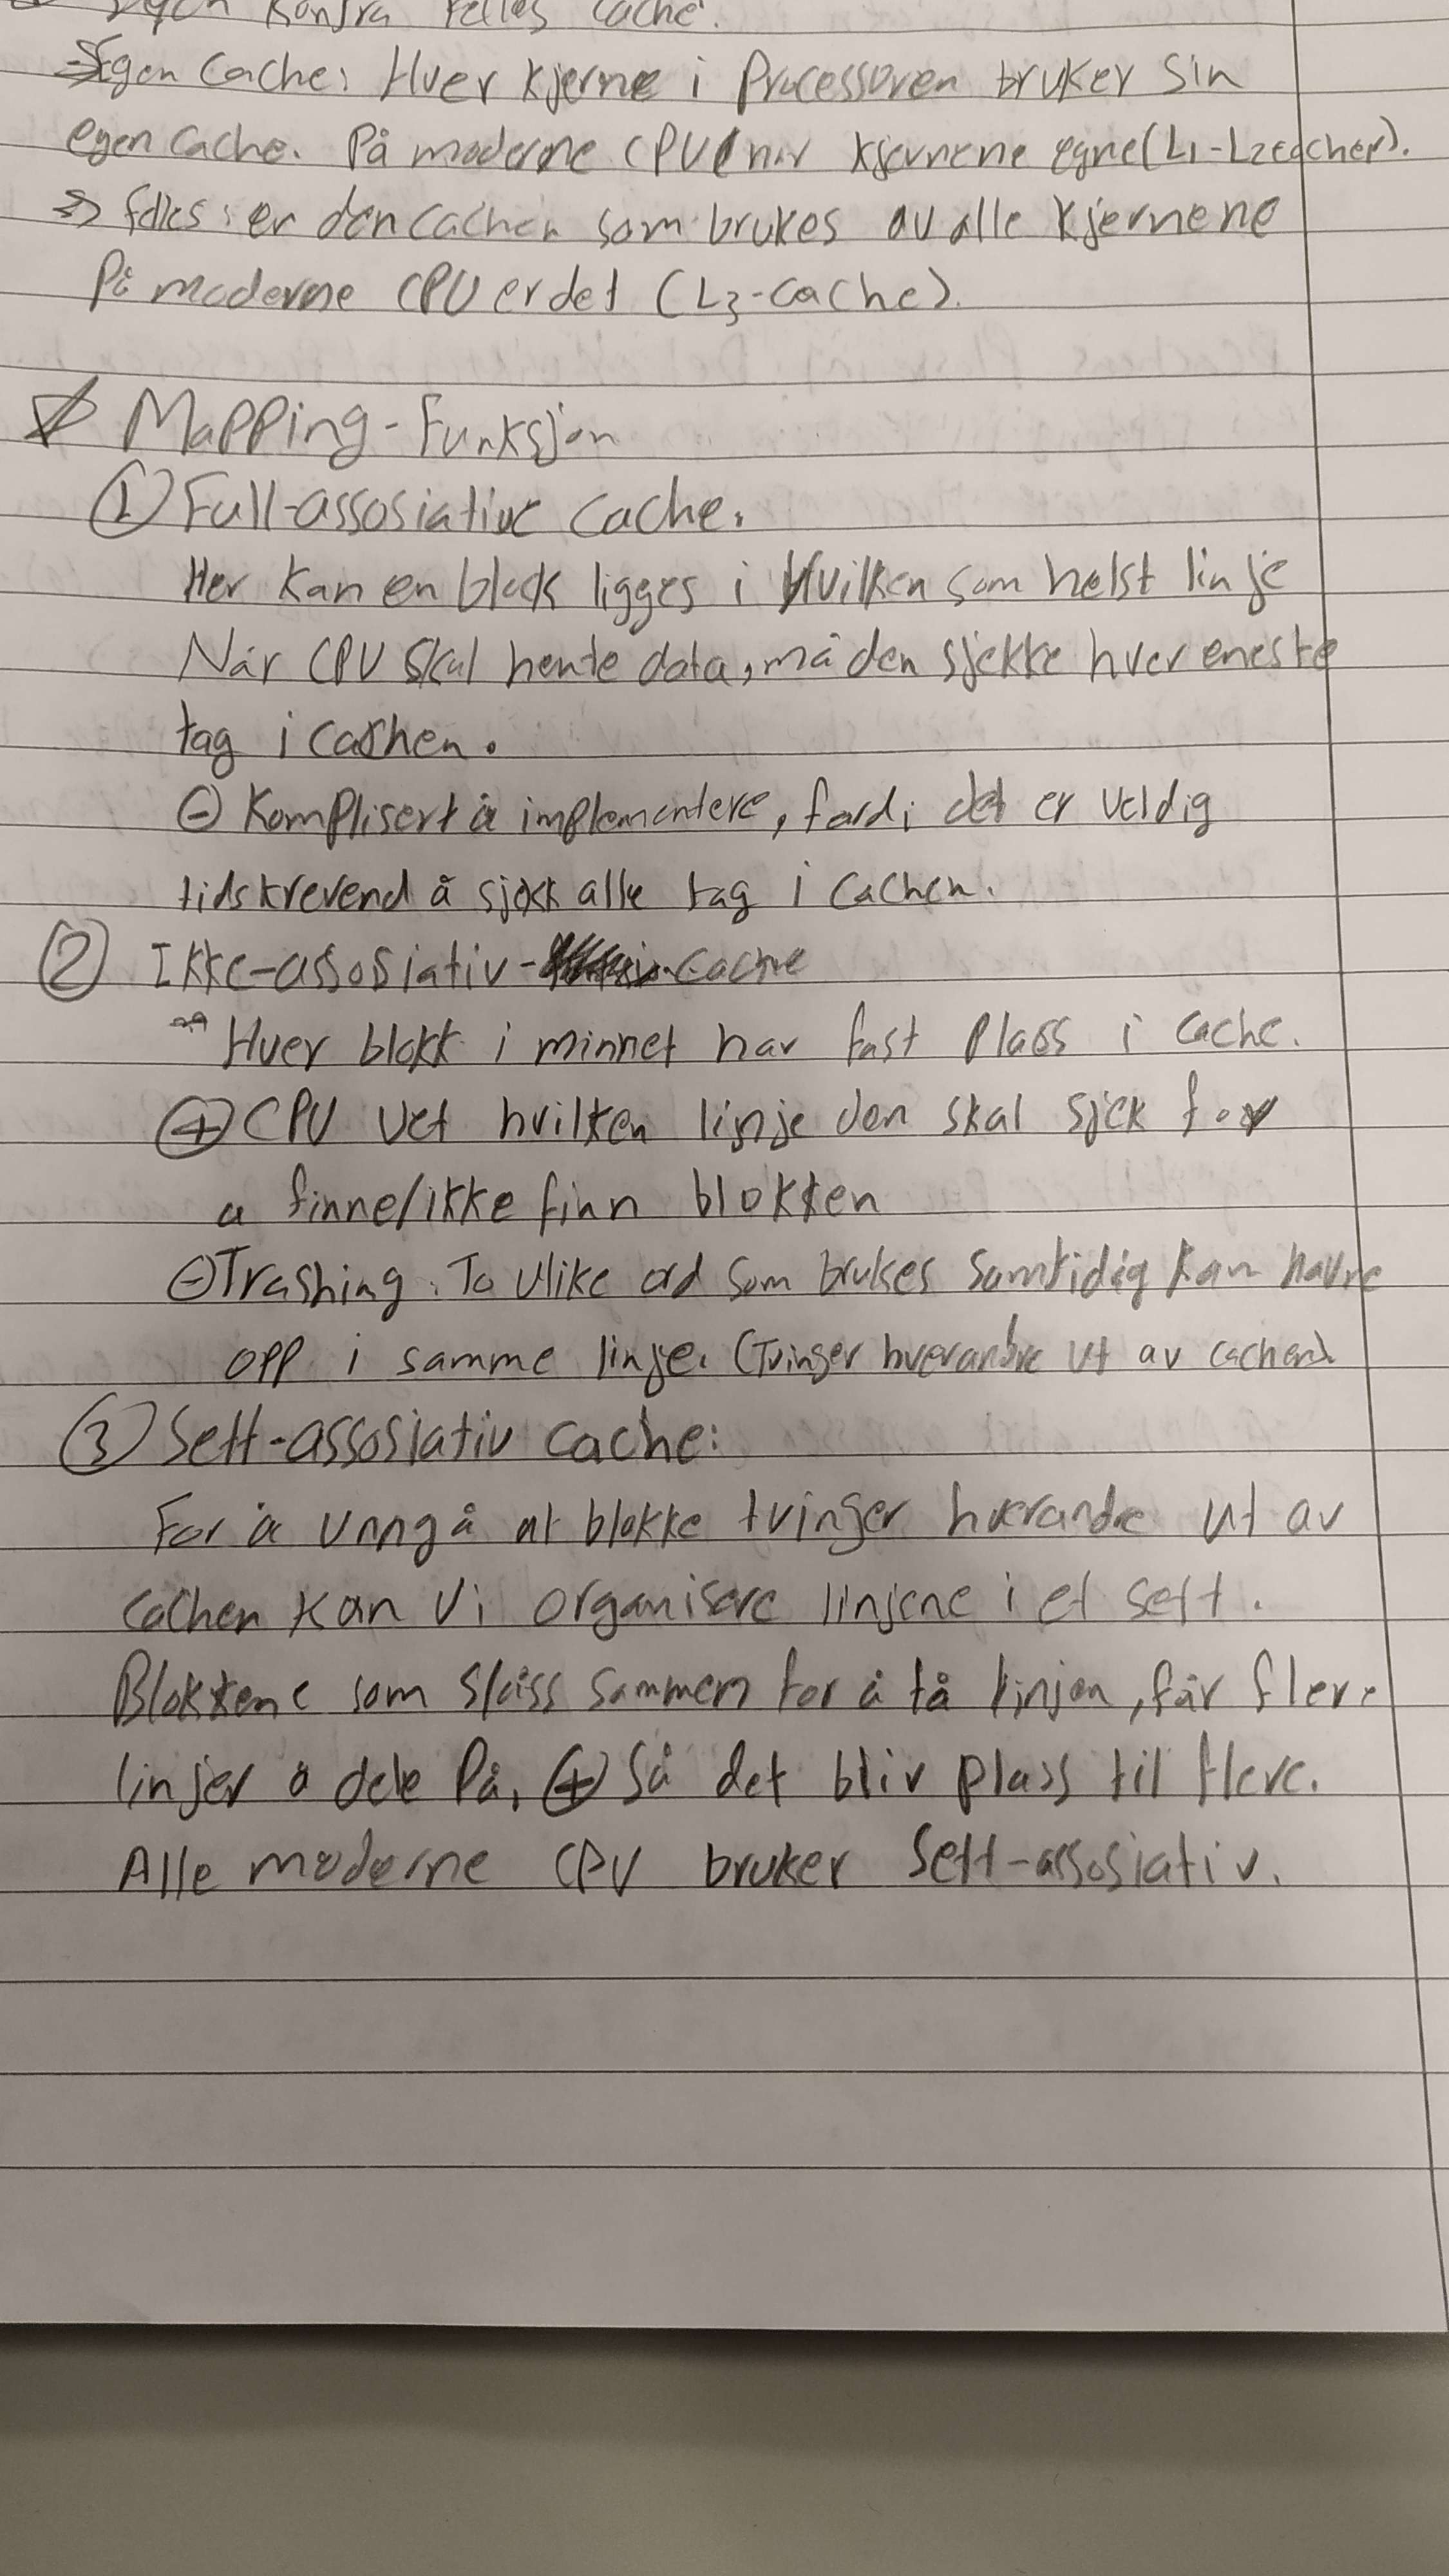 Egen kontra felles cache.
Egen cache: Hver kjerne i Processoren bruker sin
egen cache. På moderne CPU har kjernene egne (L1-L2cacher).
=> felles: er den cachen som brukes av alle kjernene
På moderne CPU er det (L3-cache).
Mapping-Funksjon
① Full-assosiative cache.
Her kan en block ligges i Hvilken som helst linje
Når CPU skal hente data, må den sjekke hver eneste
tag i cachen.
⊖ Komplisert å implementere, fordi det er veldig
tidskrevend å sjekk alle tag i cachen.
② Ikke-assosiativ-cache
Hver blokk i minnet har fast plass i cache.
⊕ CPU vet hvilken linje den skal sjek for
a finne/ikke finn blokken
⊖ Trashing: To ulike ord som brukes samtidig kan havne
opp i samme linje. (Tvinger hverandre ut av cachen).
③ Sett-assosiativ cache:
For å unngå at blokke tvinger hverandre ut av
cachen kan vi organisere linjene i et sett.
Blokkene som slåss sammen for å få linjen, får flere
linjer å dele På, ⊕ Så det bliv plass til flere.
Alle moderne CPU bruker Sett-assosiativ.